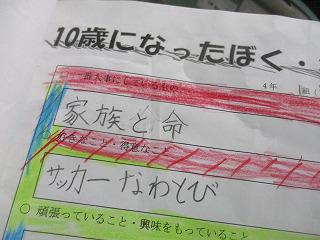 10歳になったぼく・
一番大事にしているもの
4年 組(
家族と命
○好きなこと・得意なこと
サッカー なわとび
○頑張っていること・興味をもっていること